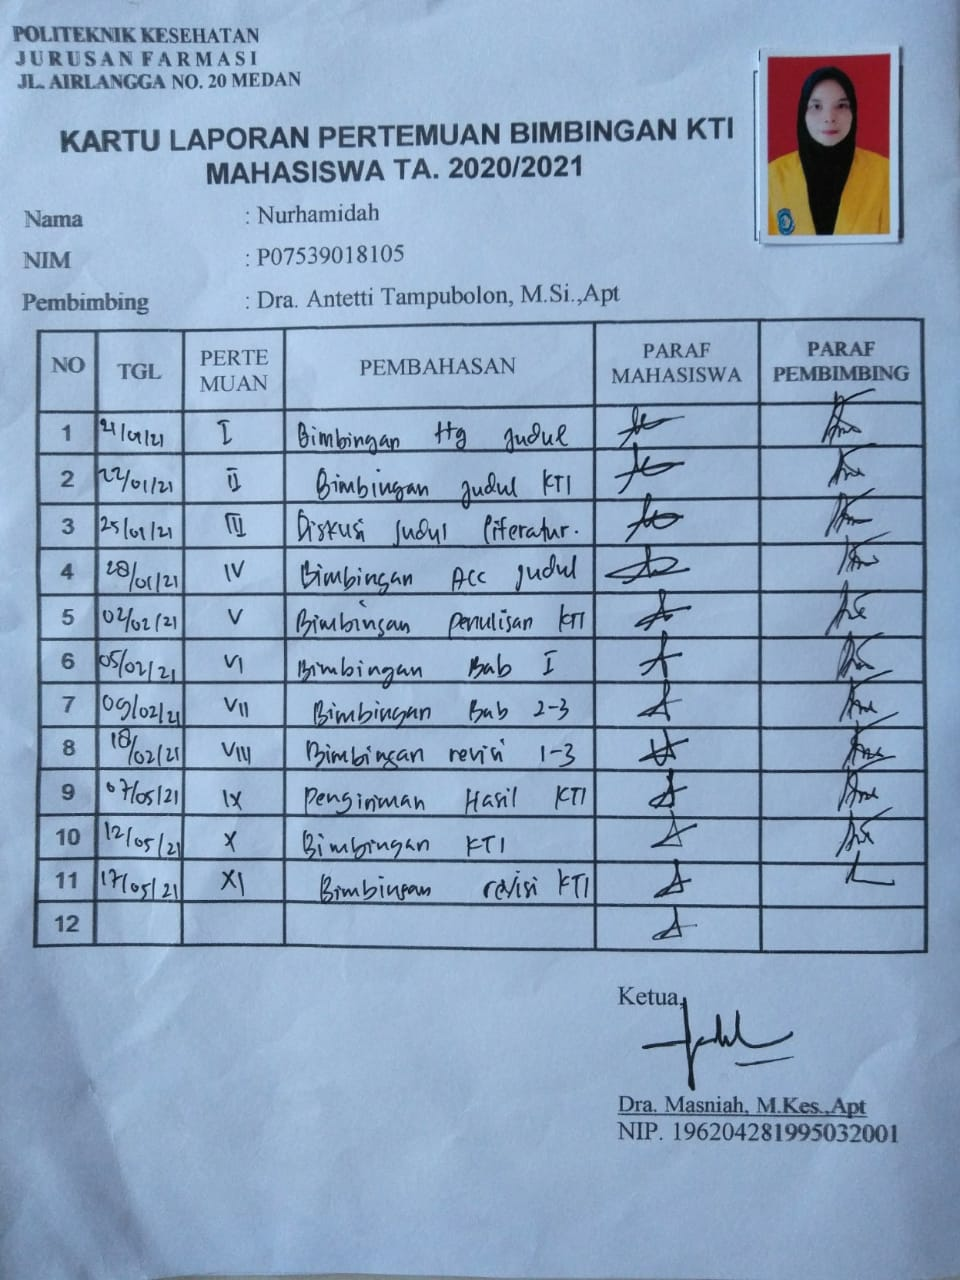 POLITEKNIK KESEHATAN
JURUSAN FARMASI
JL. AIRLANGGA NO. 20 MEDAN
KARTU LAPORAN PERTEMUAN BIMBINGAN KTI
MAHASISWA TA. 2020/2021
Nama : Nurhamidah
NIM : P07539018105
Pembimbing : Dra. Antetti Tampubolon, M.Si.,Apt
NO TGL PERTE MUAN PEMBAHASAN PARAF MAHASISWA PARAF PEMBIMBING
1 21/01/21 I Bimbingan Ttg judul
2 22/01/21 II Bimbingan judul KTI
3 25/01/21 III Diskusi Judul literatur.
4 28/01/21 IV Bimbingan Acc judul
5 02/02/21 V Bimbingan penulisan KTI
6 05/02/21 VI Bimbingan Bab I
7 09/02/21 VII Bimbingan Bab 2-3
8 18/02/21 VIII Bimbingan revisi 1-3
9 07/05/21 IX Pengiriman Hasil KTI
10 12/05/21 X Bimbingan KTI
11 17/05/21 XI Bimbingan revisi KTI
12
Ketua,
Dra. Masniah, M.Kes.,Apt
NIP. 196204281995032001